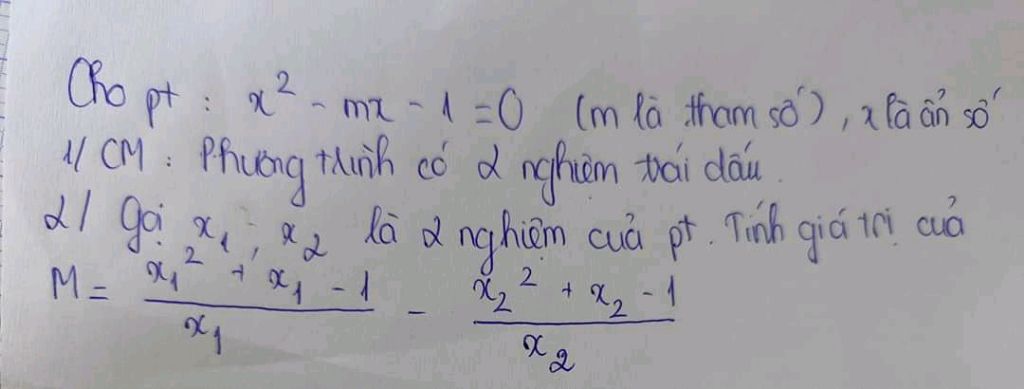 Cho pt : x² - mx - 1 = 0 (m là tham số), x là ẩn số
1/ CM : Phương trình có 2 nghiệm trái dấu.
2/ Gọi x₁ ; x₂ là 2 nghiệm của pt. Tính giá trị của
M = (x₁² + x₁ - 1)/x₁ - (x₂² + x₂ - 1)/x₂